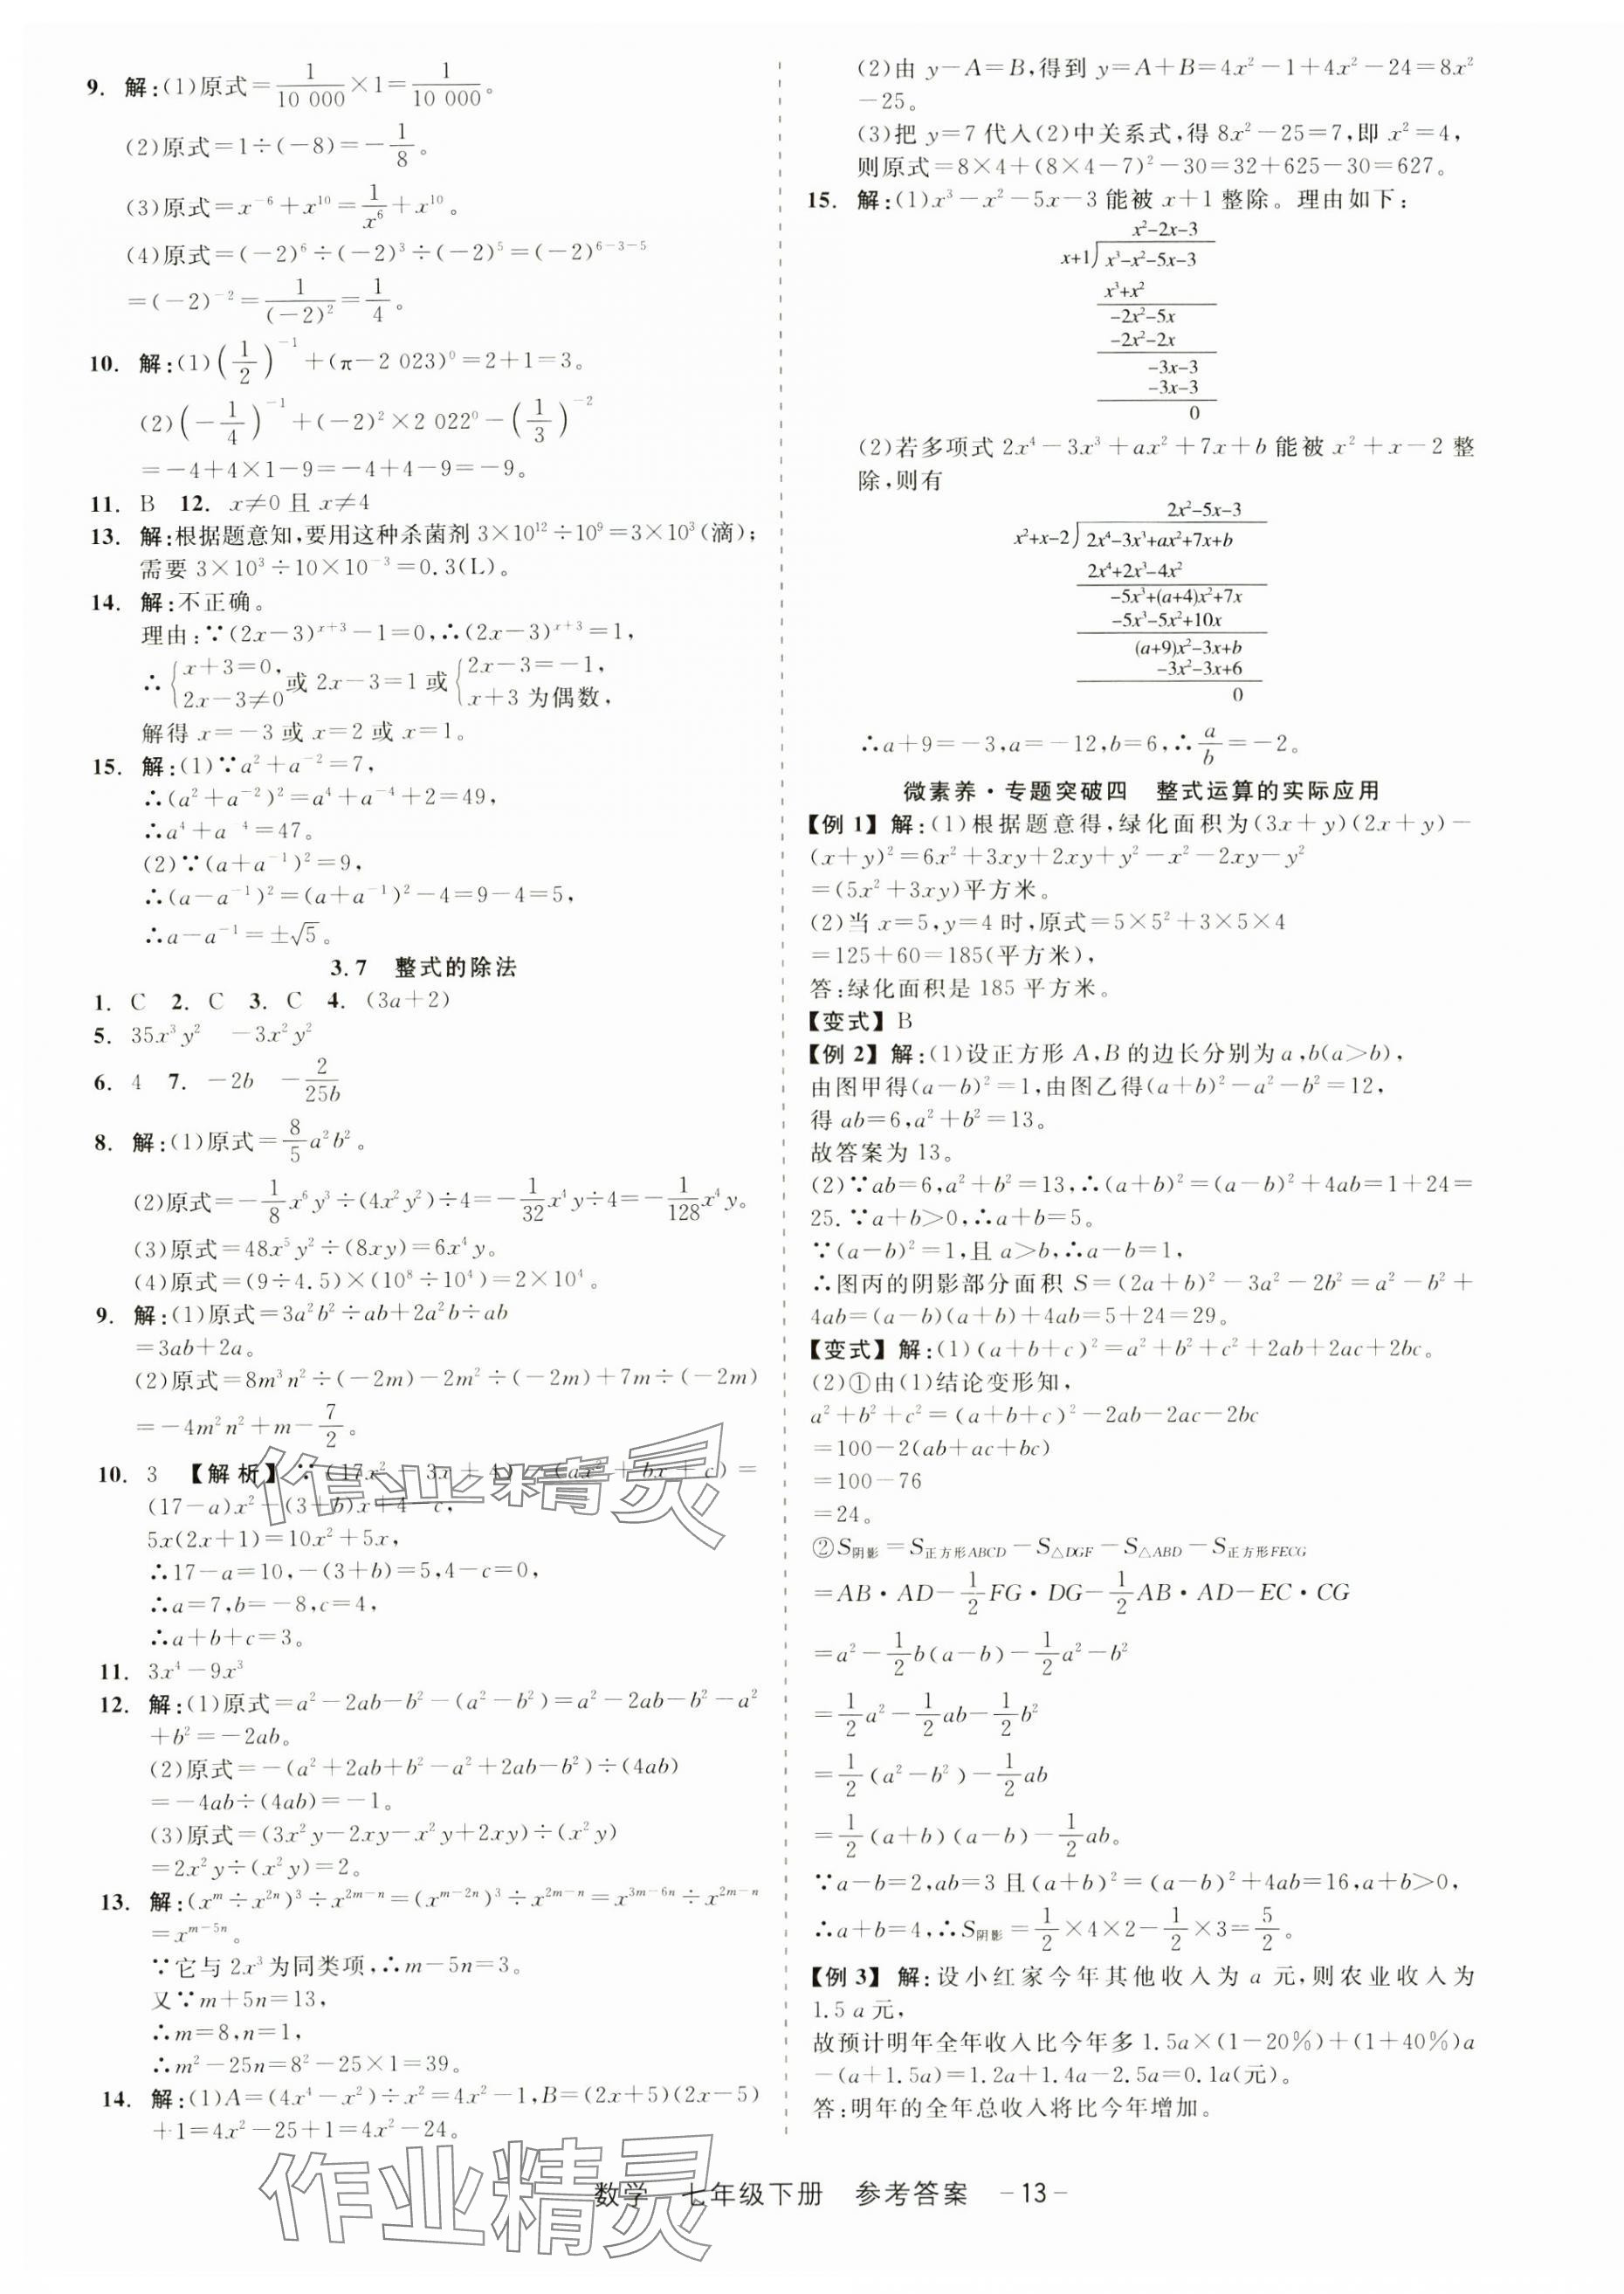 9. 解:(1)原式=1/10 000×1=1/10 000。
(2)原式=1÷(-8)=-1/8。
(3)原式=x⁻⁶+x¹⁰=1/x⁶+x¹⁰。
(4)原式=(-2)⁶÷(-2)³÷(-2)⁵=(-2)⁶⁻³⁻⁵
=(-2)⁻²=1/(-2)²=1/4。
10. 解:(1)(1/2)⁻¹+(π-2 023)⁰=2+1=3。
(2)(-1/4)⁻¹+(-2)²×2 022⁰-(1/3)⁻²
=-4+4×1-9=-4+4-9=-9。
11. B 12. x≠0 且 x≠4
13. 解:根据题意知,要用这种杀菌剂 3×10¹²÷10⁹=3×10³(滴);
需要 3×10³÷10×10⁻³=0.3(L)。
14. 解:不正确。
理由:∵(2x-3)ˣ⁺³-1=0,∴(2x-3)ˣ⁺³=1,
∴{x+3=0, 2x-3≠0 或 2x-3=1 或{2x-3=-1, x+3 为偶数,
解得 x=-3 或 x=2 或 x=1。
15. 解:(1)∵a²+a⁻²=7,
∴(a²+a⁻²)²=a⁴+a⁻⁴+2=49,
∴a⁴+a⁻⁴=47。
(2)∵(a+a⁻¹)²=9,
∴(a-a⁻¹)²=(a+a⁻¹)²-4=9-4=5,
∴a-a⁻¹=±√5。
3.7 整式的除法
1. C 2. C 3. C 4. (3a+2)
5. 35x³y² -3x²y²
6. 4 7. -2b -2/25b
8. 解:(1)原式=8/5a²b²。
(2)原式=-1/8x⁶y³÷(4x²y²)÷4=-1/32x⁴y÷4=-1/128x⁴y。
(3)原式=48x⁵y²÷(8xy)=6x⁴y。
(4)原式=(9÷4.5)×(10⁸÷10⁴)=2×10⁴。
9. 解:(1)原式=3a²b²÷ab+2a²b÷ab
=3ab+2a。
(2)原式=8m³n²÷(-2m)-2m²÷(-2m)+7m÷(-2m)
=-4m²n²+m-7/2。
10. 3 【解析】∵(17x²-3x+4)-(ax²+bx+c)=
(17-a)x²-(3+b)x+4-c,
5x(2x+1)=10x²+5x,
∴17-a=10,-(3+b)=5,4-c=0,
∴a=7,b=-8,c=4,
∴a+b+c=3。
11. 3x⁴-9x³
12. 解:(1)原式=a²-2ab-b²-(a²-b²)=a²-2ab-b²-a²
+b²=-2ab。
(2)原式=-(a²+2ab+b²-a²+2ab-b²)÷(4ab)
=-4ab÷(4ab)=-1。
(3)原式=(3x²y-2xy-x²y+2xy)÷(x²y)
=2x²y÷(x²y)=2。
13. 解:(xᵐ÷x²ⁿ)³÷x²ᵐ⁻ⁿ=(xᵐ⁻²ⁿ)³÷x²ᵐ⁻ⁿ=x³ᵐ⁻⁶ⁿ÷x²ᵐ⁻ⁿ
=xᵐ⁻⁵ⁿ。
∵它与 2x³为同类项,∴m-5n=3。
又∵m+5n=13,
∴m=8,n=1,
∴m²-25n=8²-25×1=39。
14. 解:(1)A=(4x⁴-x²)÷x²=4x²-1,B=(2x+5)(2x-5)
+1=4x²-25+1=4x²-24。
(2)由 y-A=B,得到 y=A+B=4x²-1+4x²-24=8x²
-25。
(3)把 y=7 代入(2)中关系式,得 8x²-25=7,即 x²=4,
则原式=8×4+(8×4-7)²-30=32+625-30=627。
15. 解:(1)x³-x²-5x-3 能被 x+1 整除。理由如下:
x²-2x-3
x+1)x³-x²-5x-3
x³+x²
-2x²-5x
-2x²-2x
-3x-3
-3x-3
0
(2)若多项式 2x⁴-3x³+ax²+7x+b 能被 x²+x-2 整
除,则有
2x²-5x-3
x²+x-2)2x⁴-3x³+ax²+7x+b
2x⁴+2x³-4x²
-5x³+(a+4)x²+7x
-5x³-5x²+10x
(a+9)x²-3x+b
-3x²-3x+6
0
∴a+9=-3,a=-12,b=6,∴a/b=-2。
微素养·专题突破四 整式运算的实际应用
【例 1】 解:(1)根据题意得,绿化面积为(3x+y)(2x+y)-
(x+y)²=6x²+3xy+2xy+y²-x²-2xy-y²
=(5x²+3xy)平方米。
(2)当 x=5,y=4 时,原式=5×5²+3×5×4
=125+60=185(平方米),
答:绿化面积是 185 平方米。
【变式】B
【例 2】 解:(1)设正方形 A,B 的边长分别为 a,b(a>b),
由图甲得(a-b)²=1,由图乙得(a+b)²-a²-b²=12,
得 ab=6,a²+b²=13。
故答案为 13。
(2)∵ab=6,a²+b²=13,∴(a+b)²=(a-b)²+4ab=1+24=
25.∵a+b>0,∴a+b=5。
∵(a-b)²=1,且 a>b,∴a-b=1,
∴图丙的阴影部分面积 S=(2a+b)²-3a²-2b²=a²-b²+
4ab=(a-b)(a+b)+4ab=5+24=29。
【变式】 解:(1)(a+b+c)²=a²+b²+c²+2ab+2ac+2bc。
(2)①由(1)结论变形知,
a²+b²+c²=(a+b+c)²-2ab-2ac-2bc
=100-2(ab+ac+bc)
=100-76
=24。
②S阴影=S正方形ABCD-S△DGF-S△ABD-S正方形FECG
=AB·AD-1/2FG·DG-1/2AB·AD-EC·CG
=a²-1/2b(a-b)-1/2a²-b²
=1/2a²-1/2ab-1/2b²
=1/2(a²-b²)-1/2ab
=1/2(a+b)(a-b)-1/2ab。
∵a-b=2,ab=3 且(a+b)²=(a-b)²+4ab=16,a+b>0,
∴a+b=4,∴S阴影=1/2×4×2-1/2×3=5/2。
【例 3】 解:设小红家今年其他收入为 a 元,则农业收入为
1.5 a 元,
故预计明年全年收入比今年多 1.5a×(1-20%)+(1+40%)a
-(a+1.5a)=1.2a+1.4a-2.5a=0.1a(元)。
答:明年的全年总收入将比今年增加。
作业精灵
作业精灵
数学 七年级下册 参考答案 -13-